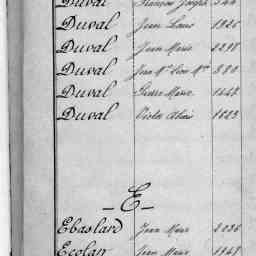 Duval François Joseph 544
Duval Jean Louis 1926
Duval Jean Marie 2298
Duval Jean Mie 880
Duval Pierre Marie 1648
Duval Victor Alexis 1623
- E -
Ebastard Jean Marie 2036
Ecolan Jean Marie 1948